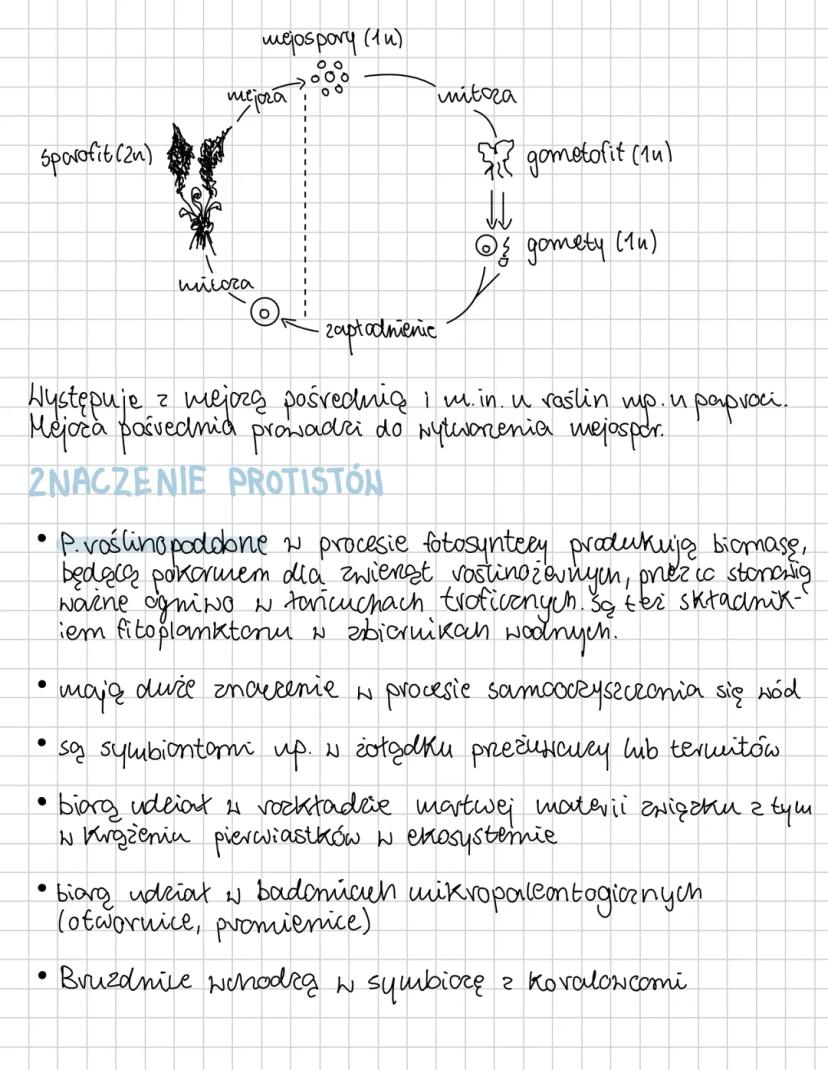 mejospory (1n)
mejoza
mitoza
sporofit (2n)
gametofit (1n)
gamety (1n)
mitoza
zapłodnienie
Występuje z mejozą pośrednią i m.in. u roślin np. u paproci.
Mejoza pośrednia prowadzi do wytworzenia mejospor.
ZNACZENIE PROTISTÓW
• P. roślinopodobne w procesie fotosyntezy produkują biomasę,
będącą pokarmem dla zwierząt roślinożernych, przez co stanowią
ważne ogniwo w łańcuchach troficznych. Są też składnik-
iem fitoplanktonu w zbiornikach wodnych.
• mają duże znaczenie w procesie samooczyszczania się wód
• są symbiontami np. w żołądku przeżuwaczy lub termitów
• biorą udział w rozkładzie martwej materii związku z tym
w krążeniu pierwiastków w ekosystemie
• biorą udział w badaniach mikropaleontogicznych
(otwornice, promienice)
• Bruzdnice wchodzą w symbiozę z koralowcami